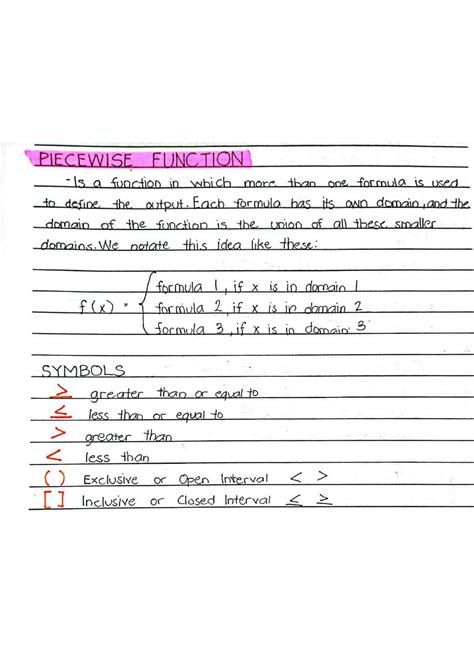 PIECEWISE FUNCTION
- Is a function in which more than one formula is used
to define the output. Each formula has its own domain, and the
domain of the function is the union of all these smaller
domains. We notate this idea like these:
formula 1, if x is in domain 1
f(x) = { formula 2, if x is in domain 2
formula 3, if x is in domain 3
SYMBOLS
≥ greater than or equal to
≤ less than or equal to
> greater than
< less than
( ) Exclusive or Open Interval < >
[ ] Inclusive or Closed Interval ≤ ≥